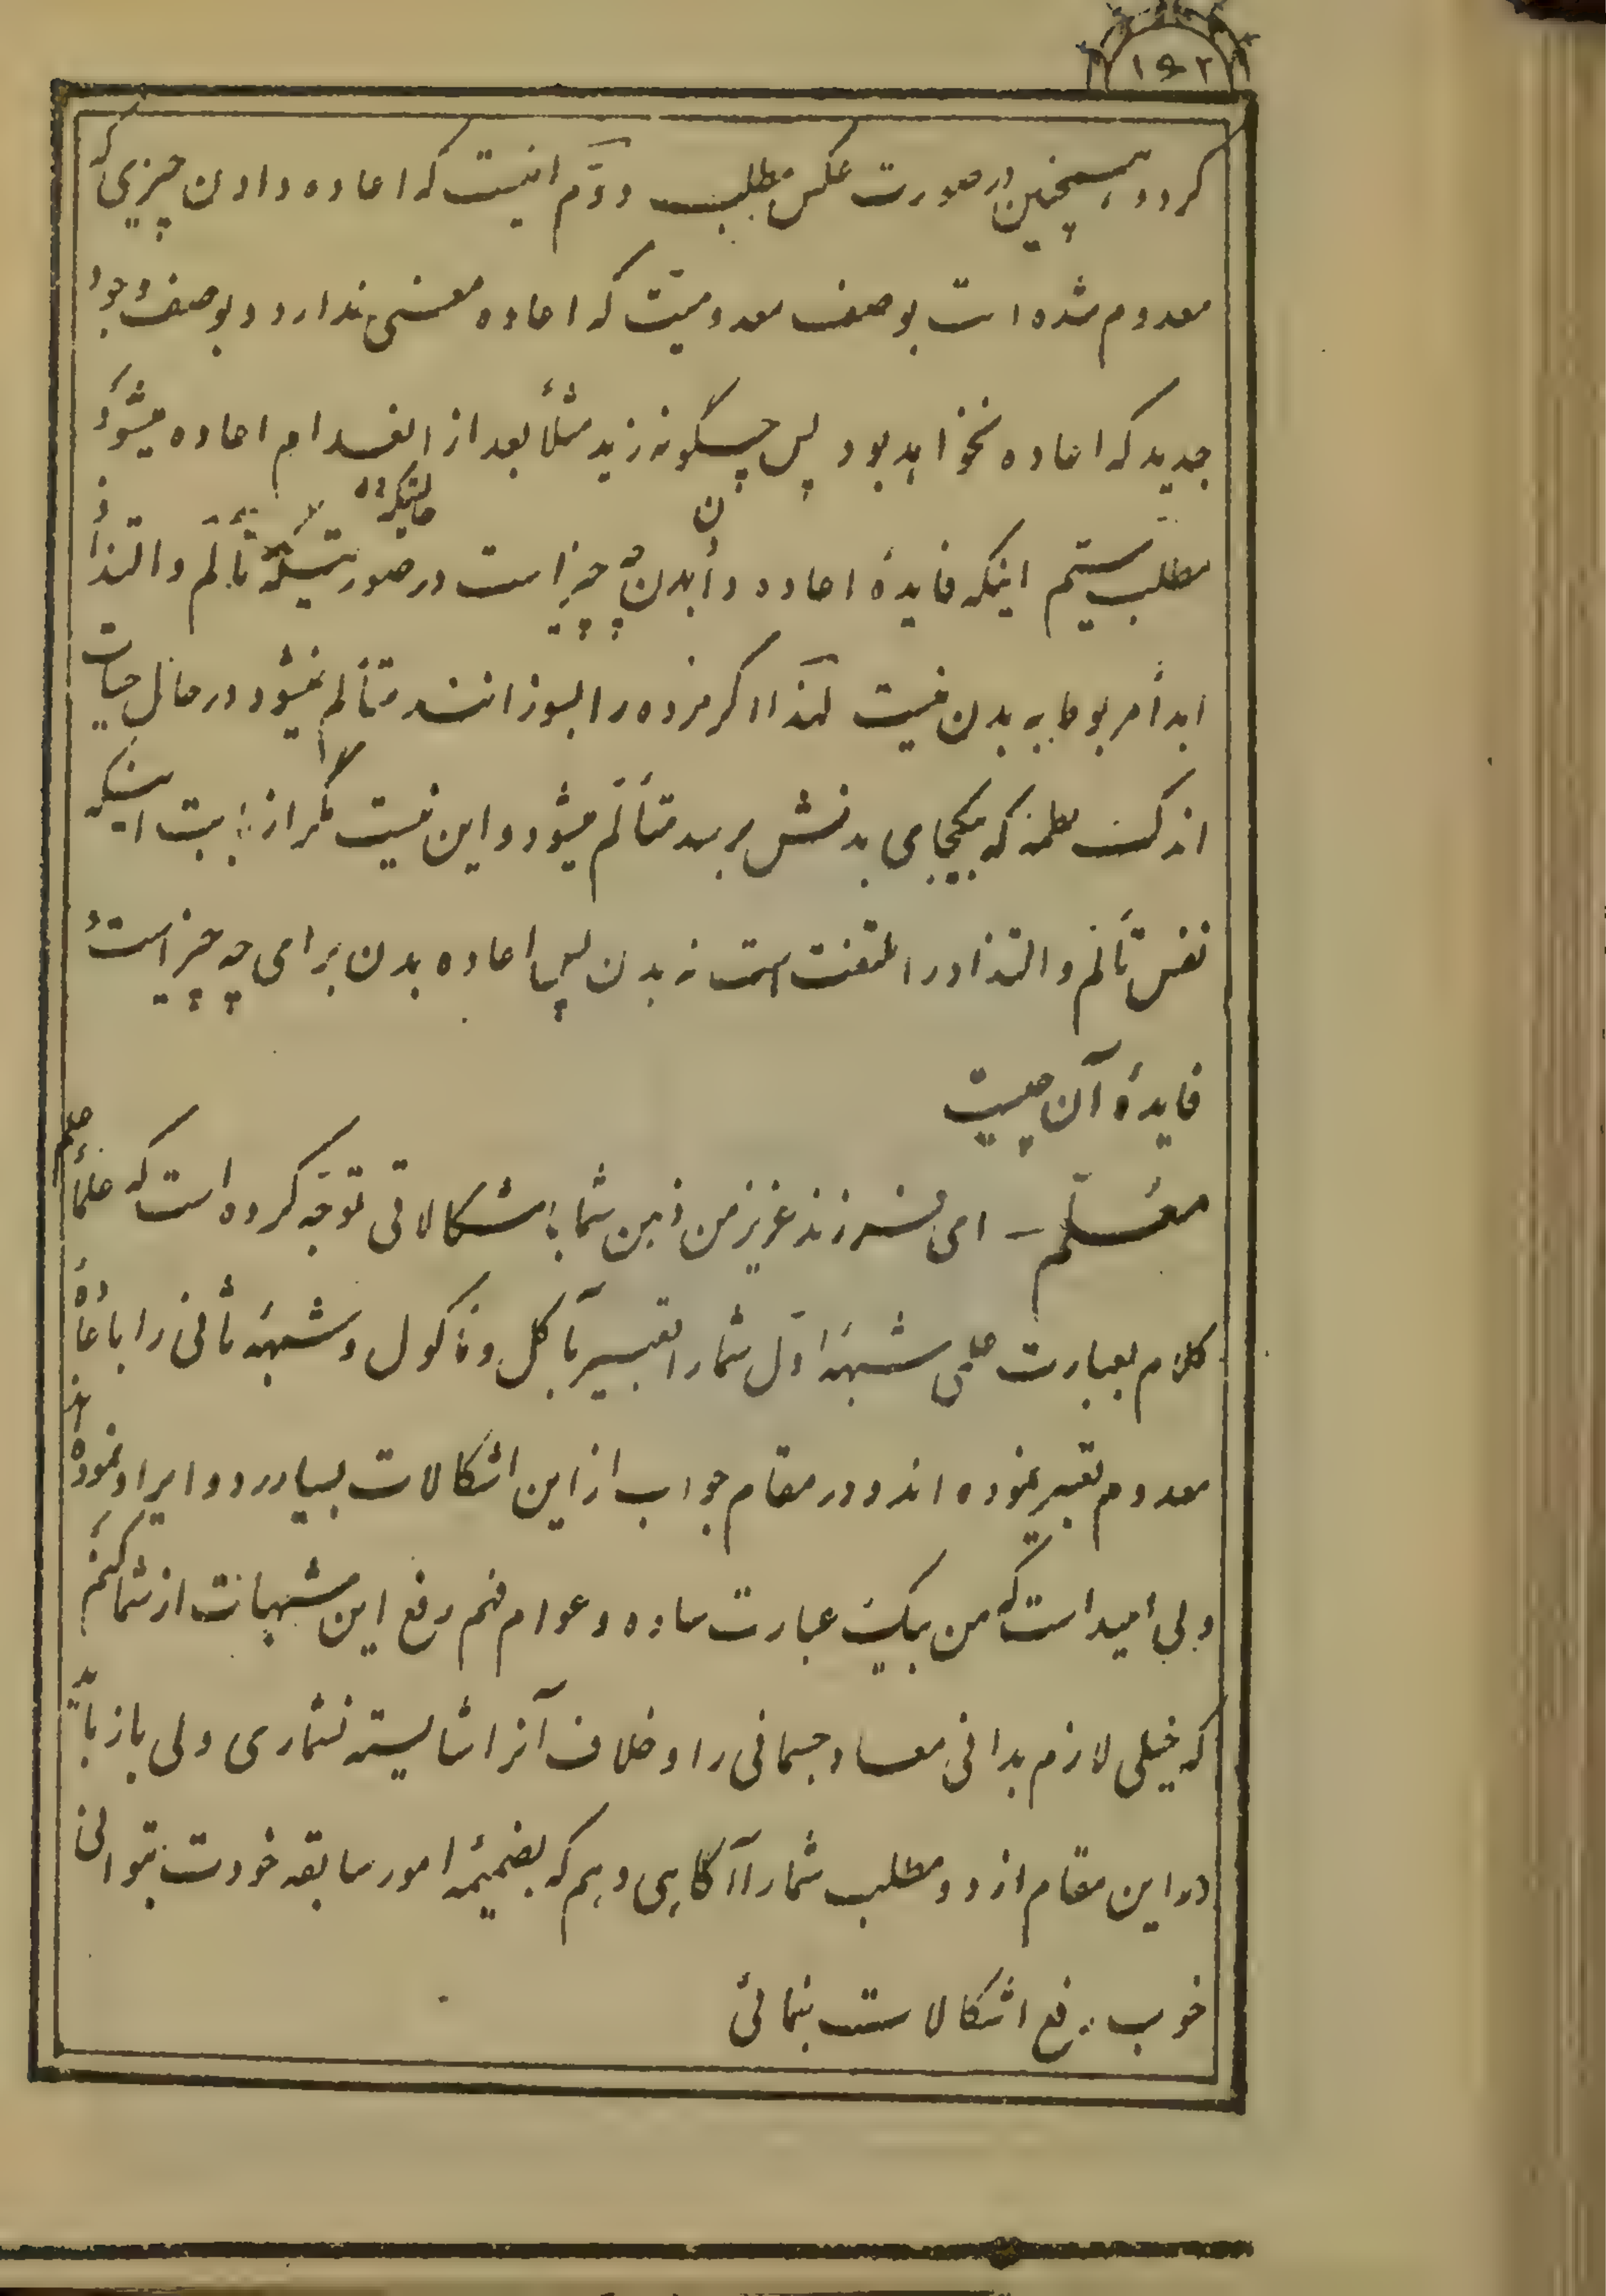 ۱۵۲
گردد و همچنین در صورت عکس مطلب دوّم اینست که اعاده دادن چیزی که
معدوم شده است بوصف معدومیّت که اعاده معنی ندارد و بوصف وجود
جدید که اعاده نخواهد بود پس چگونه زید مثلاً بعد از انعدام اعاده میشود
مطلب سیّم اینکه فایدهٔ اعاده دادن بدن چه چیز است در صورتیکه تألّم و التذاذ
ابداً مربوط به بدن نیست لهذا اگر مرده را بسوزانند متألّم نمیشود در حال حیات
اندک صدمه که بیکجای بدنش برسد متألّم میشود و این نیست مگر از بابت اینکه
نفس تألّم و التذاذ را ملتفت است نه بدن پس اعاده بدن برای چه چیز است و
فایدهٔ آن چیست
معلّم – ای فرزند عزیز من ذهن شما باشکالاتی توجّه کرده است که علمای علم
کلام بعبارت علمی شبههٔ اوّل شما را تعبیر بآکل و مأکول و شبههٔ ثانی را باعاده
معدوم تعبیر نموده اند و در مقام جواب از این اشکالات بسیار رد و ایراد نموده اند
ولی امید است که من بیک عبارت ساده و عوام فهم رفع این شبهات از شما کنم
که خیلی لازم بدانی معاد جسمانی را و خلاف آنرا شایسته نشماری ولی باز باید
در این مقام از دو مطلب شما را آگاهی دهم که بضمیمهٔ امور سابقه خودت بتوانی
خوب رفع اشکالات بنمائی